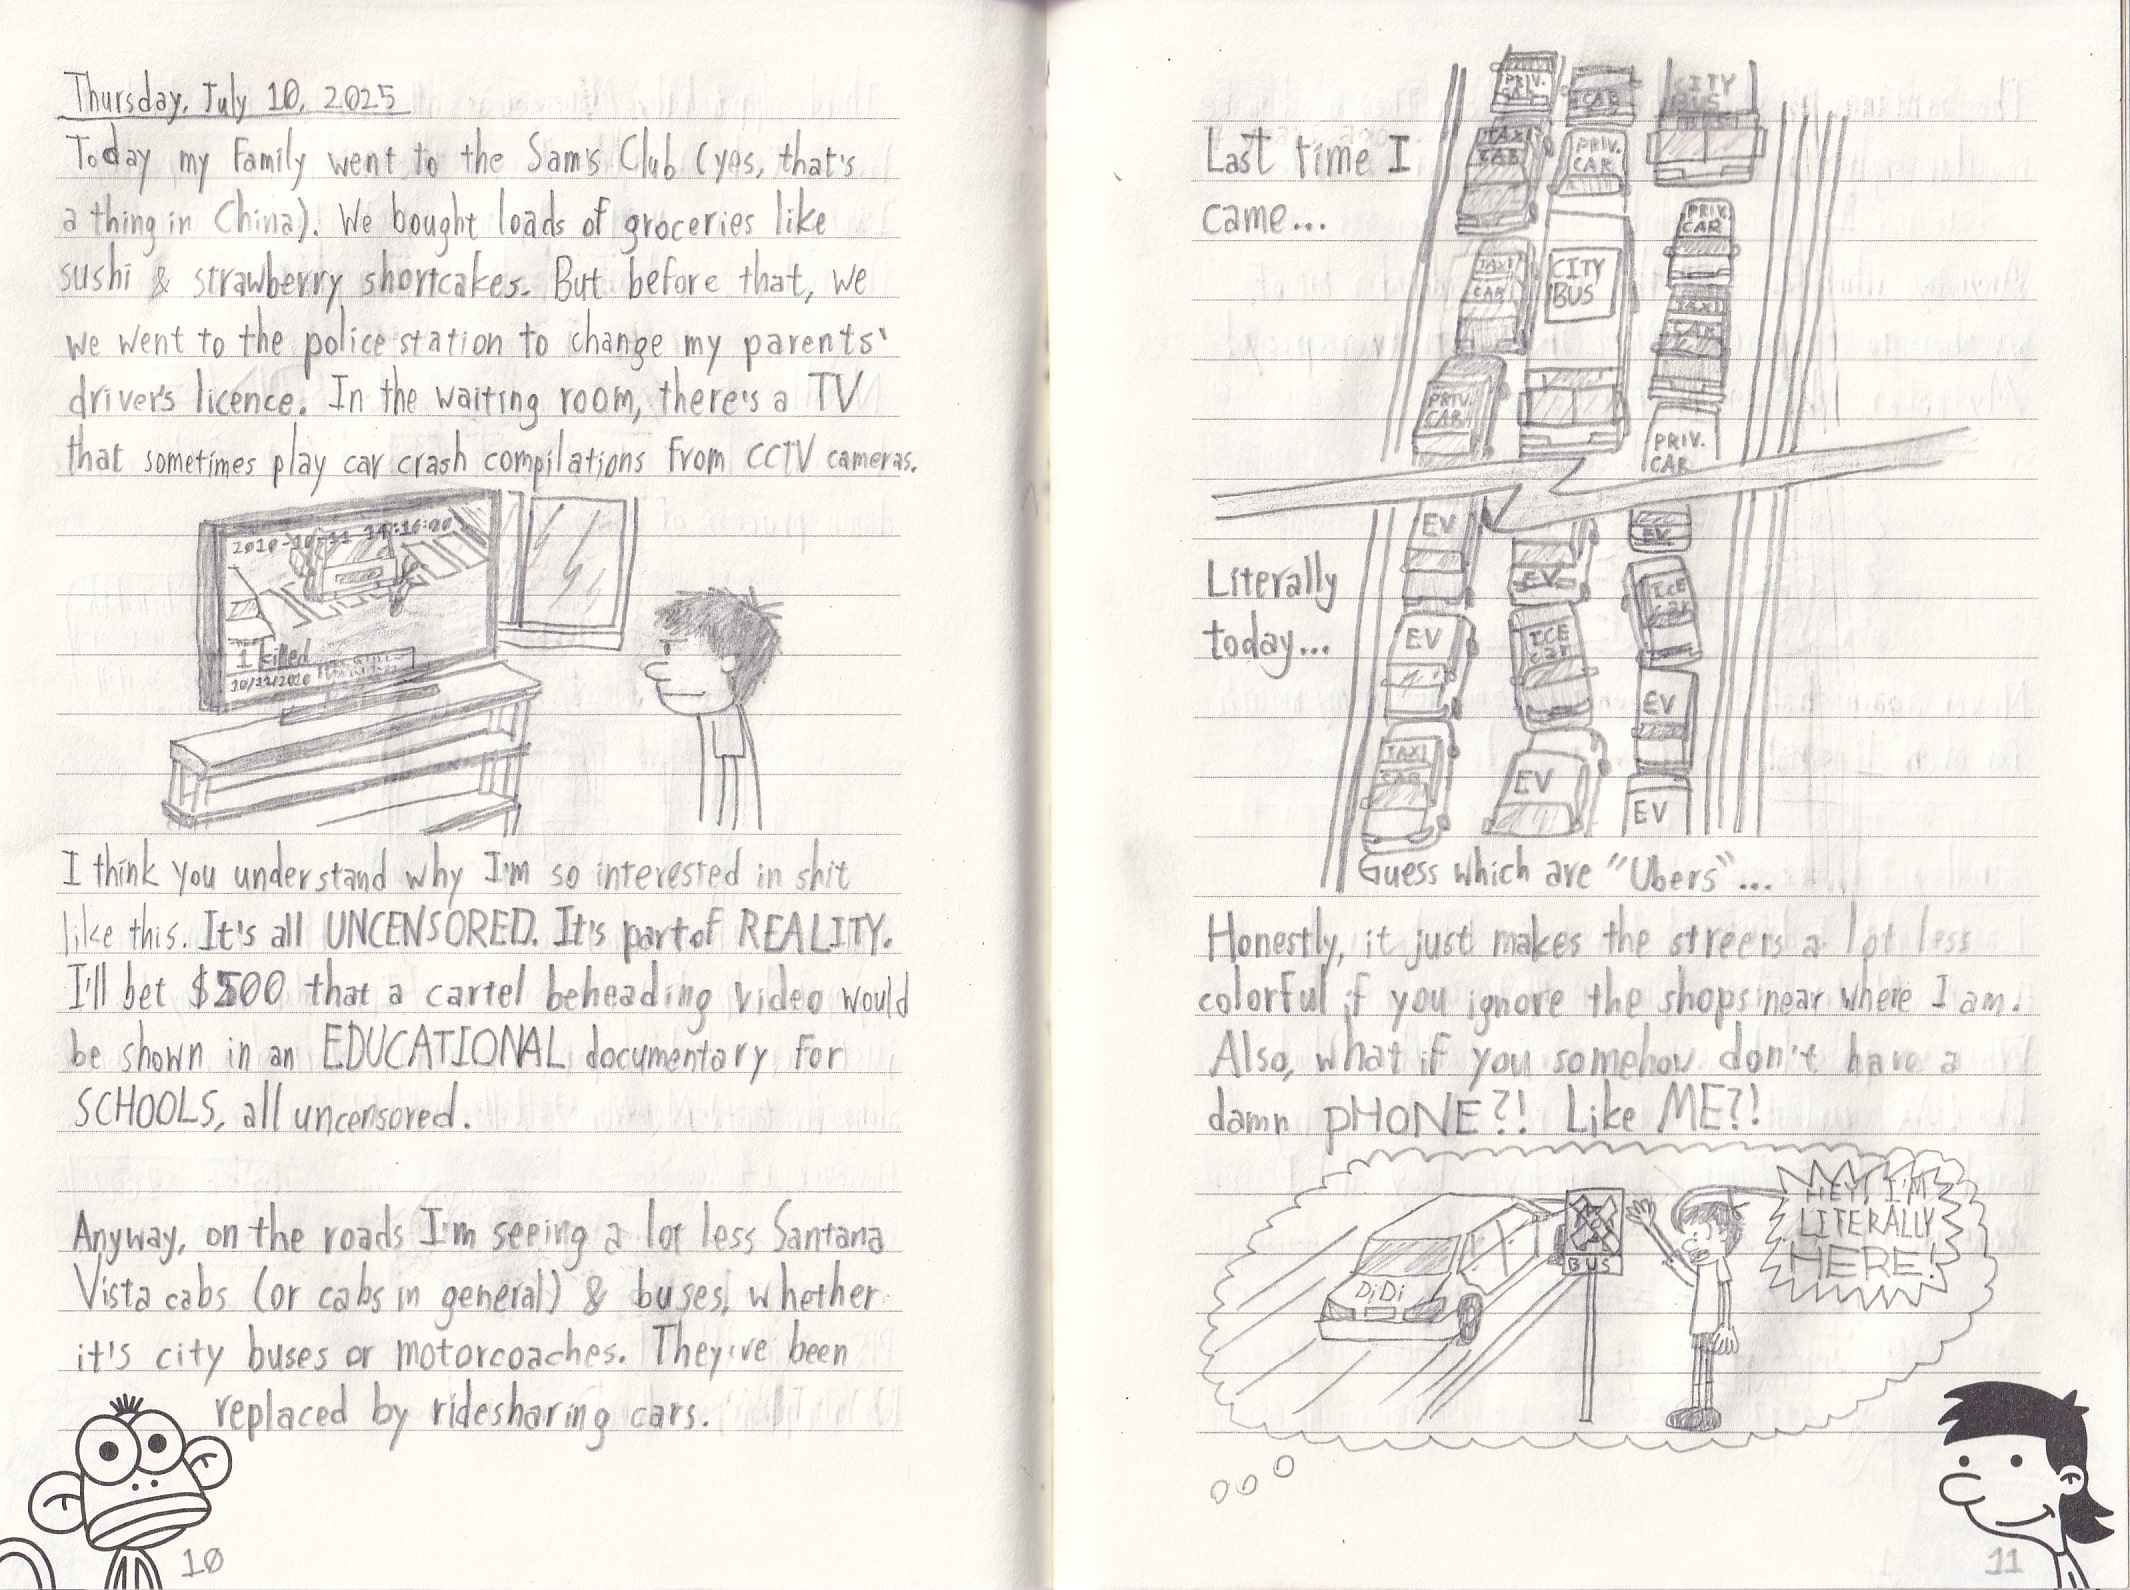 Thursday, July 10, 2025
Today my Family went to the Sam's Club (yes, that's
a thing in China). We bought loads of groceries like
sushi & strawberry shortcakes. But before that, we
we went to the police station to change my parents'
driver's licence. In the waiting room, there's a TV
that sometimes play car crash compilations from CCTV cameras.
2010-10-11 14:16:00
1 killed
10/11/2010
I think you understand why I'm so interested in shit
like this. It's all UNCENSORED. It's part of REALITY.
I'll bet $500 that a cartel beheading video would
be shown in an EDUCATIONAL documentary for
SCHOOLS, all uncensored.
Anyway, on the roads I'm seeing a lot less Santana
Vista cabs (or cabs in general) & buses, whether
it's city buses or motorcoaches. They've been
replaced by ridesharing cars.
10
Last time I
came...
PRIV.
CAR
CAB
CITY
BUS
TAXI
CAB
PRIV.
CAR
PRIV.
CAR
TAXI
CAB
CITY
BUS
TAXI
CAB
PRIV.
CAR
PRIV.
CAR
Literally
today...
EV
EV
EV
EV
ICE
car
ICE
car
EV
TAXI
CAB
EV
EV
Guess which are "Ubers"...
Honestly, it just makes the streers a lot less
colorful if you ignore the shops near where I am.
Also, what if you somehow don't have a
damn PHONE?! Like ME?!
DiDi
BUS
HEY, I'M
LITERALLY
HERE!
11